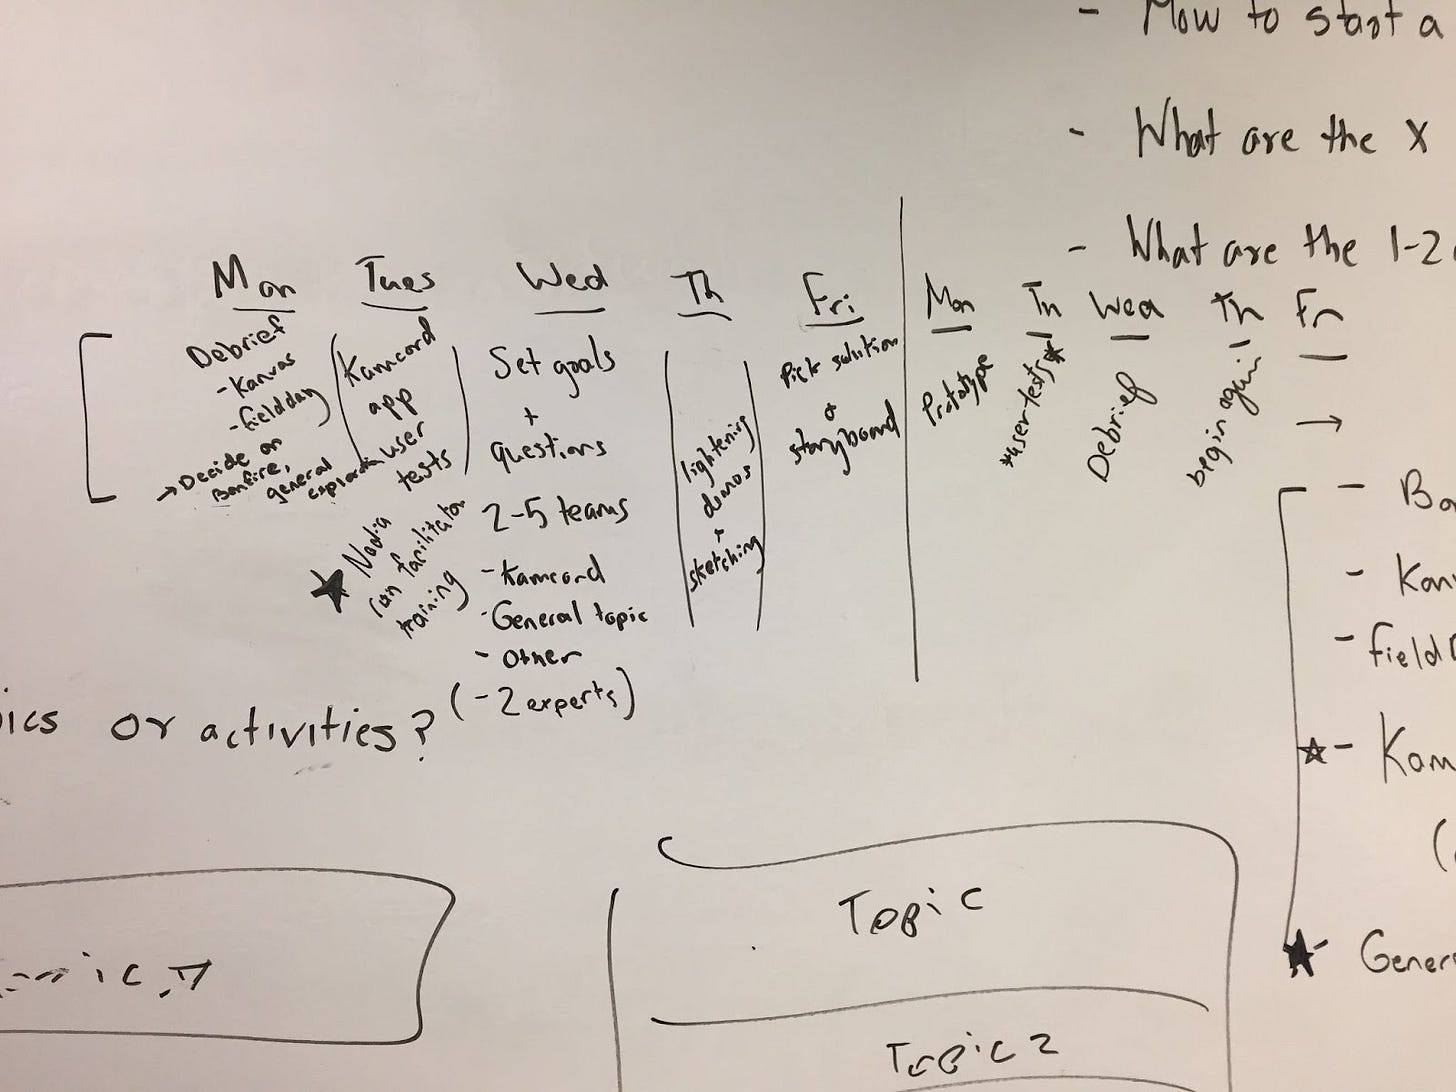 - How to start a
- What are the X
- What are the 1-2
Mon Tues Wed Th Fri
Debrief
- Kanvas
- fieldday
→ Decide on
Bonfire,
general
Kamcord
app
user
tests
★ Nadia
run facilitator
training
Set goals
+
questions
2-5 teams
- Kamcord
- General topic
- Other
(- 2 experts)
lightening
demos
+
sketching
Pick solution
&
storyboard
Mon Tu Wed Th Fri
Prototype
*user tests*
Debrief
begin again!
→
or activities?
- Field
★-
★-
Topic
Topic 2